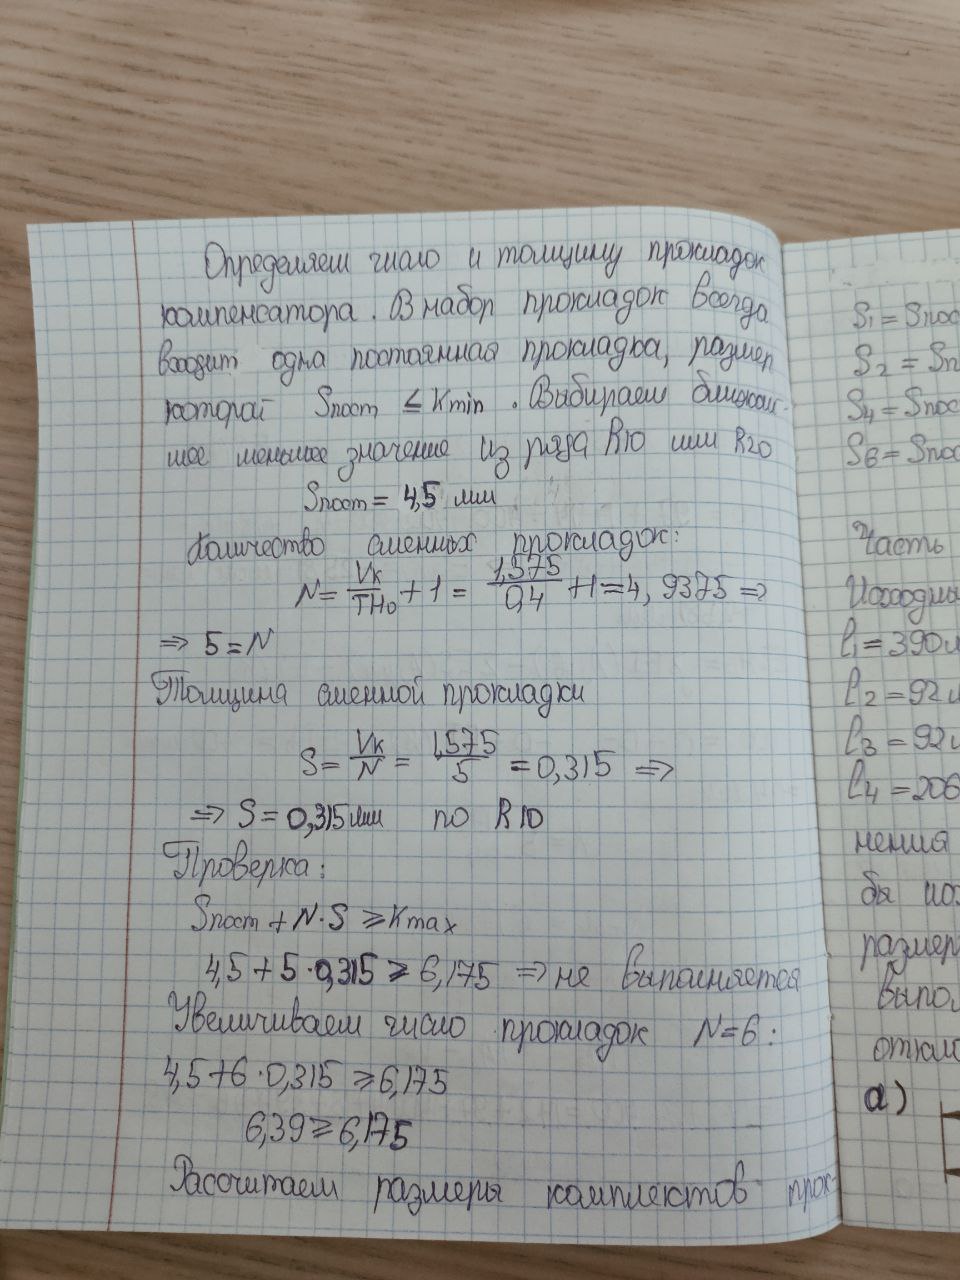 Определяем число и толщину прокладок
компенсатора. В набор прокладок всегда
входит одна постоянная прокладка, размер
которой Sпост ≤ Kmin. Выбираем ближай-
шее меньшее значение из ряда R10 или R20
Sпост = 4,5 мм
Количество сменных прокладок:
N = Vк/THo + 1 = 1,575/0,4 + 1 = 4,9375 ⇒
⇒ 5 = N
Толщина сменной прокладки
S = Vк/N = 1,575/5 = 0,315 ⇒
⇒ S = 0,315 мм по R10
Проверка:
Sпост + N·S ≥ Kmax
4,5 + 5·0,315 ≥ 6,175 ⇒ не выполняется
Увеличиваем число прокладок N = 6:
4,5 + 6·0,315 ≥ 6,175
6,39 ≥ 6,175
Рассчитаем размеры комплектов прок-
S1 = Sпос
S2 = Sп
S4 = Sпос
S6 = Sпос
Часть
Исходны
l1 = 390
l2 = 92
l3 = 92
l4 = 206
нения
бы
размер
выпол
откло
а)